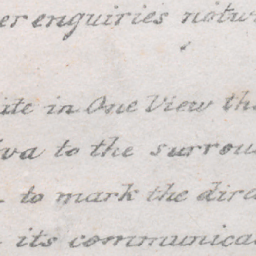 er enquiries notw
ite in One View th
va to the surrou
to mark the dire
its communica